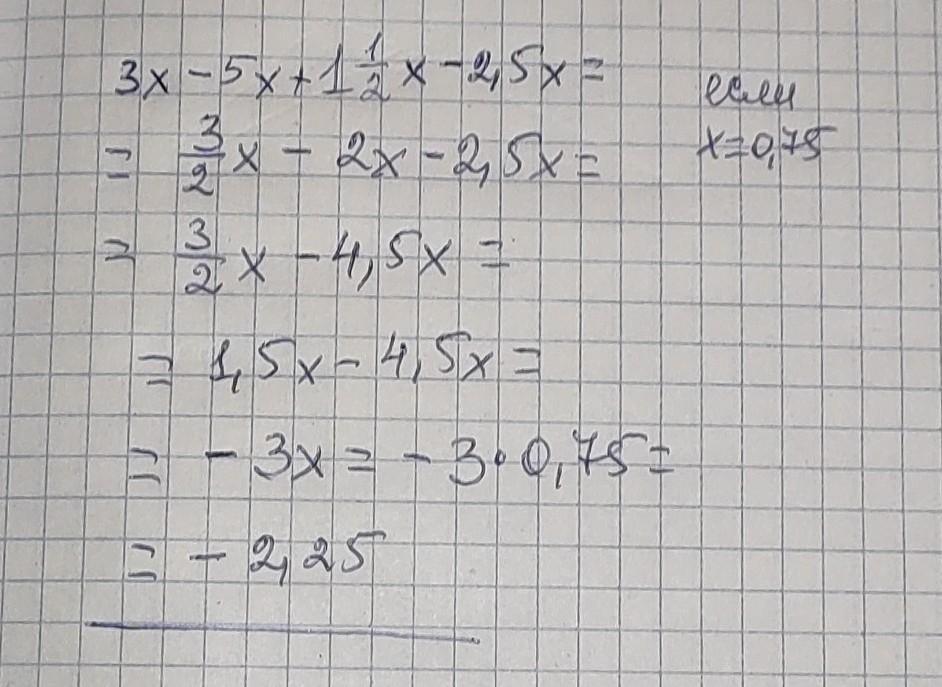 3x - 5x + 1 1/2 x - 2,5x =
если
= 3/2 x - 2x - 2,5x =
x = 0,75
= 3/2 x - 4,5x =
= 1,5x - 4,5x =
= - 3x = - 3 · 0,75 =
= - 2,25